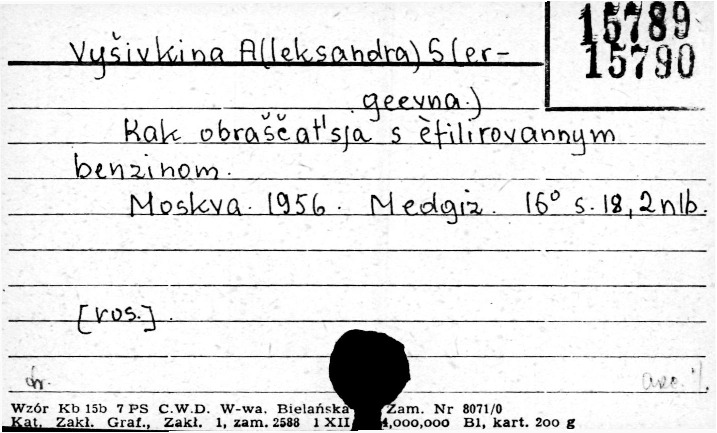 15789
15790
Vyšivkina A(leksandra) S(er-
geevna.)
Kak obraščat'sja s ètilirovannym
benzinom.
Moskva. 1956. Medgiz. 16° s. 18, 2 nlb.
[ros.].
Wzór Kb 15b 7 PS C.W.D. W-wa. Bielańska Zam. Nr 8071/0
Kat. Zakł. Graf., Zakł. 1, zam. 2588 1 XII 4,000,000 B1, kart. 200 g